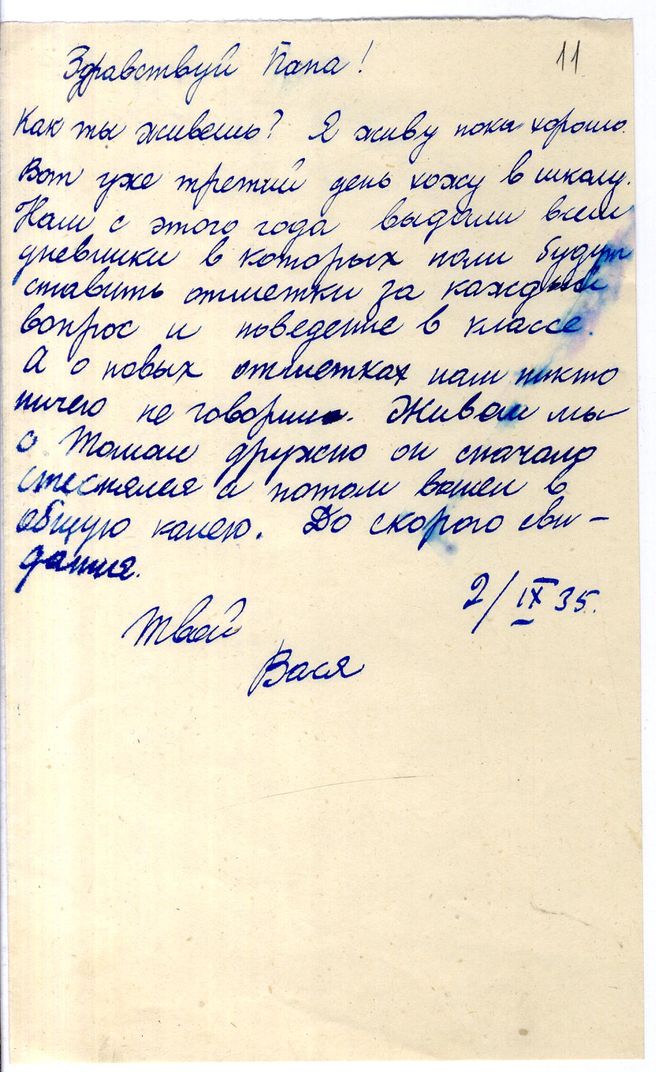 11
Здравствуй Папа!
Как ты живешь? Я живу пока хорошо.
Вот уже третий день хожу в школу.
Нам с этого года выдали всем
дневники в которых нам будут
ставить отметки за каждый
вопрос и поведение в классе.
А о новых отметках нам никто
ничего не говорил. Живем мы
с Томом дружно он сначало
стеснялся а потом вошел в
общую колею. До скорого сви-
дания.
2/IX 35.
Твой
Вася